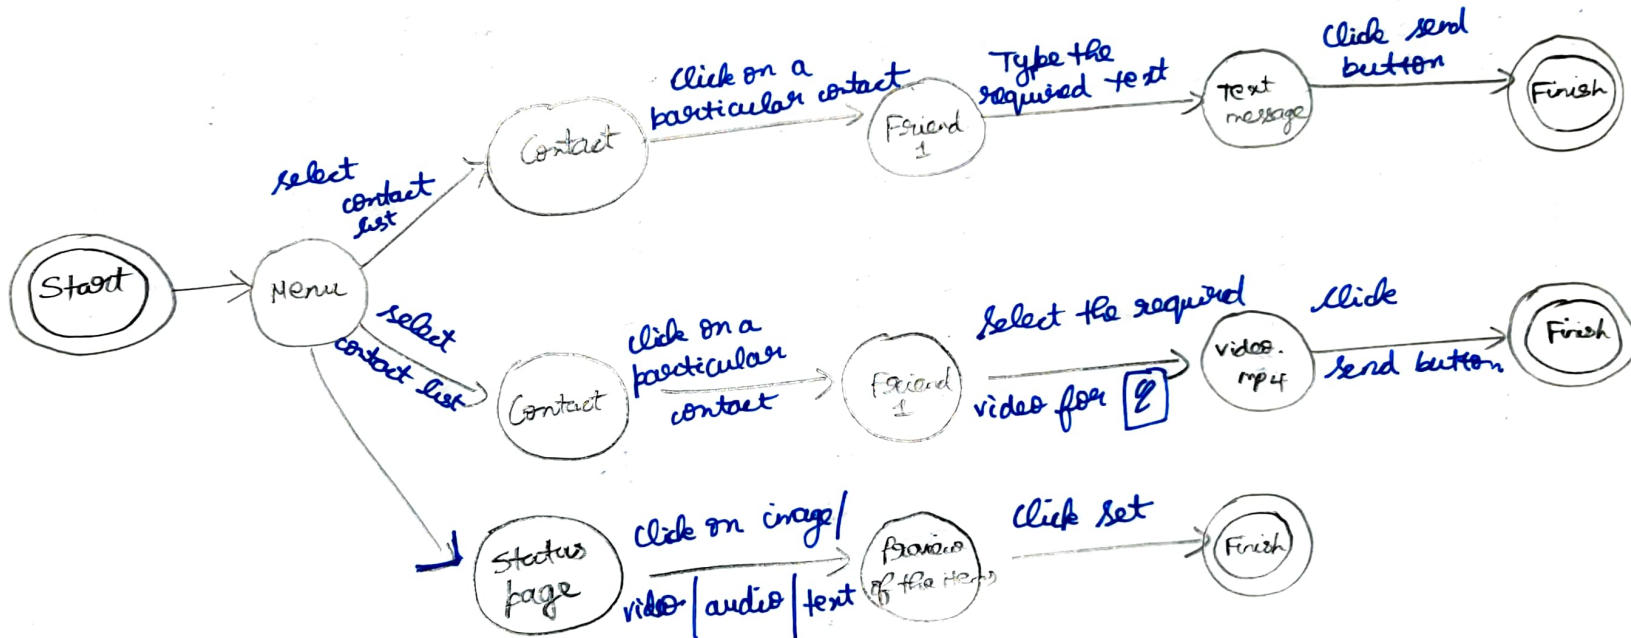 Start
Menu
select
contact
list
Contact
Click on a
particular contact
Friend
1
Type the
required text
Text
message
Click send
button
Finish
select
contact list
Contact
click on a
particular
contact
Friend
1
Select the required
video for
video.
mp4
Click
send button
Finish
Status
page
Click on image/
video/audio/text
Preview
of the items
Click set
Finish